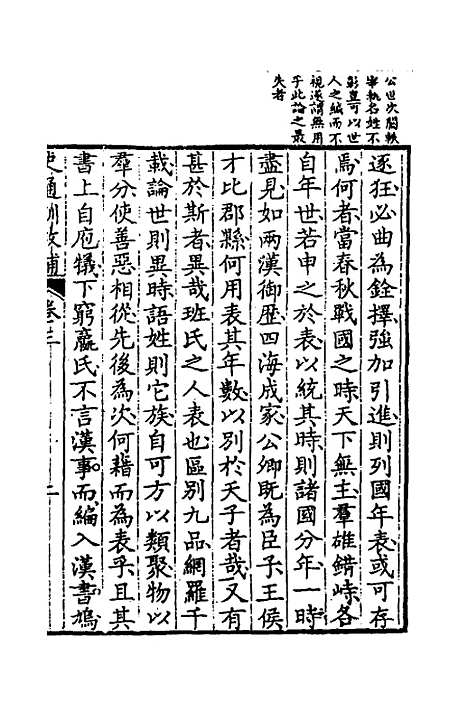 公世次間軼
畢執名姓不
彰豈可以世
人之編而不
視遂謂無用
乎此論之最
失者
逐狂必曲為銓擇強加引進則列國年表或可存
焉何者當春秋戰國之時天下無主羣雄錯峙各
自年世若申之於表以統其時則諸國分年一時
盡見如兩漢御歴四海成家公卿既為臣子王侯
才比郡縣何用表其年數以別於天子者哉又有
甚於斯者異哉班氏之人表也區別九品網羅千
載論世則異時語姓則它族自可方以類聚物以
羣分使善惡相從先後為次何藉而為表乎且其
書上自庖犧下窮嬴氏不言漢事而編入漢書鳩
史通訓故補 卷三 二